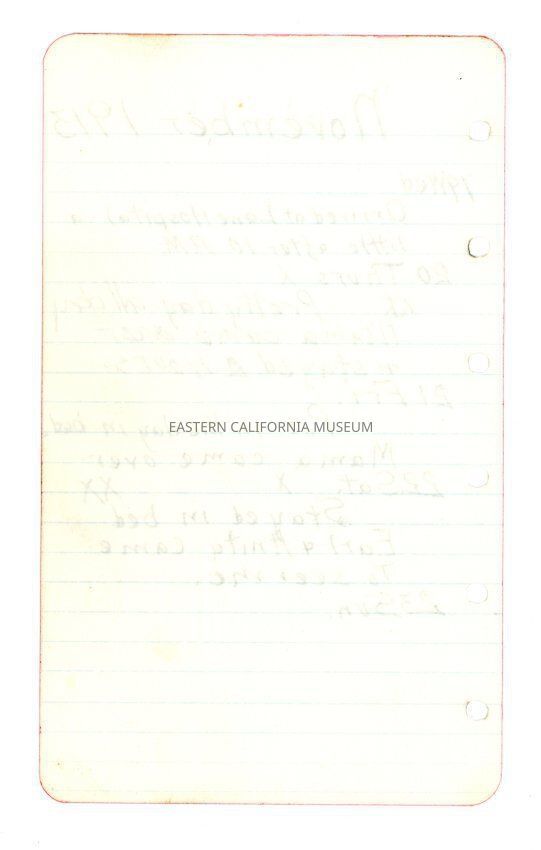 November 1913
19 Wed
Arrived at Lane Hospital a
little after 10 A.M.
20 Thurs X
Pretty day
Mama came over
stayed 2 hours
21 Fri.
day in bed.
Mama came over
22 Sat. X XX
Stayed in bed
Earl & Anita came
to see me.
23 Sun.
EASTERN CALIFORNIA MUSEUM